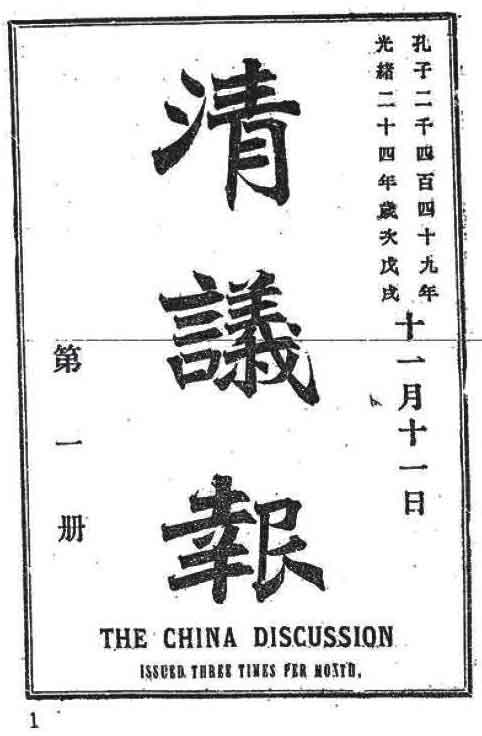 孔子二千四百四十九年
光緒二十四年歲次戊戌
十一月十一日
清議報
第一册
THE CHINA DISCUSSION
ISSUED THREE TIMES PER MONTH.
1